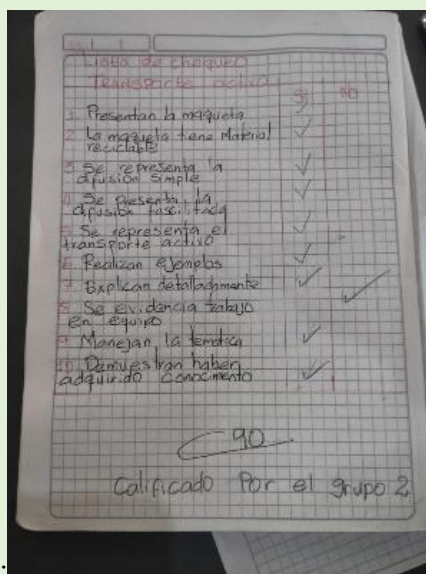 Lista de chequeo
Transporte activo
Si No
1. Presentan la maqueta
2. La maqueta tiene Material
reciclable
3. Se representa la
difusión simple
4. Se presenta la
difusión fascilitada
5. Se representa el
transporte activo
6. Realizan ejemplos
7. Explican detalladamente
8. Se evidencia trabajo
en equipo
9. Manejan la temática
10. Demuestran haber
adquirido conocimento
90
Calificado Por el grupo 2